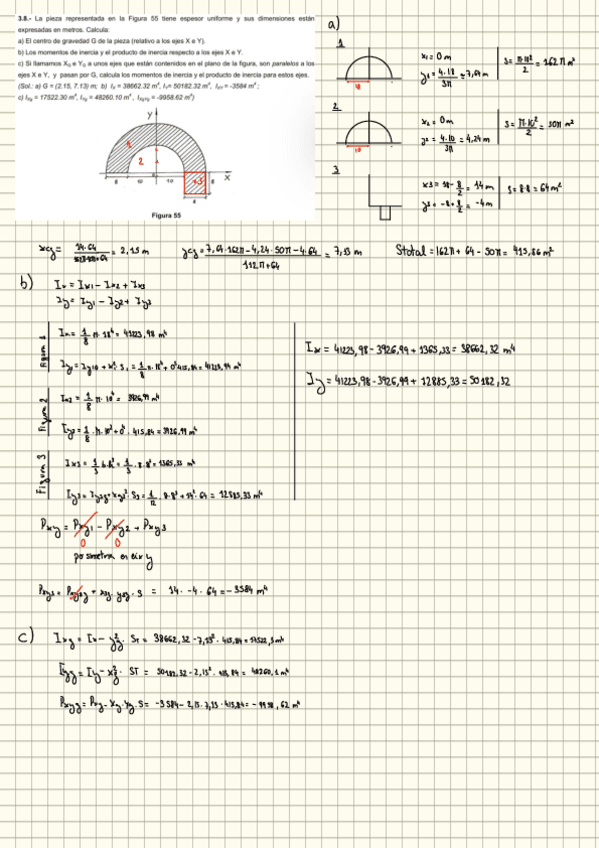 3.8.- La pieza representada en la Figura 55 tiene espesor uniforme y sus dimensiones están
expresadas en metros. Calcula:
a) El centro de gravedad G de la pieza (relativo a los ejes X e Y).
b) Los momentos de inercia y el producto de inercia respecto a los ejes X e Y.
c) Si llamamos X_G e Y_G a unos ejes que están contenidos en el plano de la figura, son paralelos a los
ejes X e Y, y pasan por G, calcula los momentos de inercia y el producto de inercia para estos ejes.
(Sol.: a) G = (2.15, 7.13) m; b) I_X = 38662.32 m⁴, I_Y = 50182.32 m⁴, I_XY = -3584 m⁴;
c) I_XG = 17522.30 m⁴, I_YG = 48260.10 m⁴, I_XGYG = -9958.62 m⁴)
Y
1
2
+3
X
8 10 10 8
8
Figura 55
a)
1
x1 = 0 m
y1 = 4.18/3π = 7,64 m
S = π·18²/2 = 162 π m²
18
2
x2 = 0 m
y2 = 4.10/3π = 4,24 m
S = π·10²/2 = 50π m²
10
3
x3 = 18 - 8/2 = 14 m
y3 = -8 + 8/2 = -4 m
S = 8·8 = 64 m²
xg = 14·64/112π+64 = 2,15 m
yg = 7,64·162π - 4,24·50π - 4·64/112π+64 = 7,13 m
Stotal = 162π + 64 - 50π = 415,86 m²
b)
Ix = Ix1 - Ix2 + Ix3
Iy = Iy1 - Iy2 + Iy3
Figura 1
Ix1 = 1/8 π·18⁴ = 41223,98 m⁴
Iy1 = Iy1g + x²·S1 = 1/8 π·18⁴ + 0²·415,84 = 41223,98 m⁴
Figura 2
Ix2 = 1/8 π·10⁴ = 3926,99 m⁴
Iy2 = 1/8·π·10⁴ + 0²·415,84 = 3926,99 m⁴
Figura 3
Ix3 = 1/3 b·h³ = 1/3·8·8³ = 1365,33 m⁴
Iy3 = Iy3g + xg3²·S3 = 1/12·8·8³ + 14²·64 = 12885,33 m⁴
Ix = 41223,98 - 3926,99 + 1365,33 = 38662,32 m⁴
Iy = 41223,98 - 3926,99 + 12885,33 = 50182,32
Pxy = Pxy1 - Pxy2 + Pxy3
0 0
por simetria en eix y
Pxy3 = + xg·yg3·S = 14·-4·64 = -3584 m⁴
c)
Ixg = Ix - yg²·ST = 38662,32 - 7,13²·415,84 = 17522,3 m⁴
Iyg = Iy - xg²·ST = 50182,32 - 2,15²·415,84 = 48260,1 m⁴
Pxyg = Pxy - xg·yg·S = -3584 - 2,15·7,13·415,84 = -9958,62 m⁴